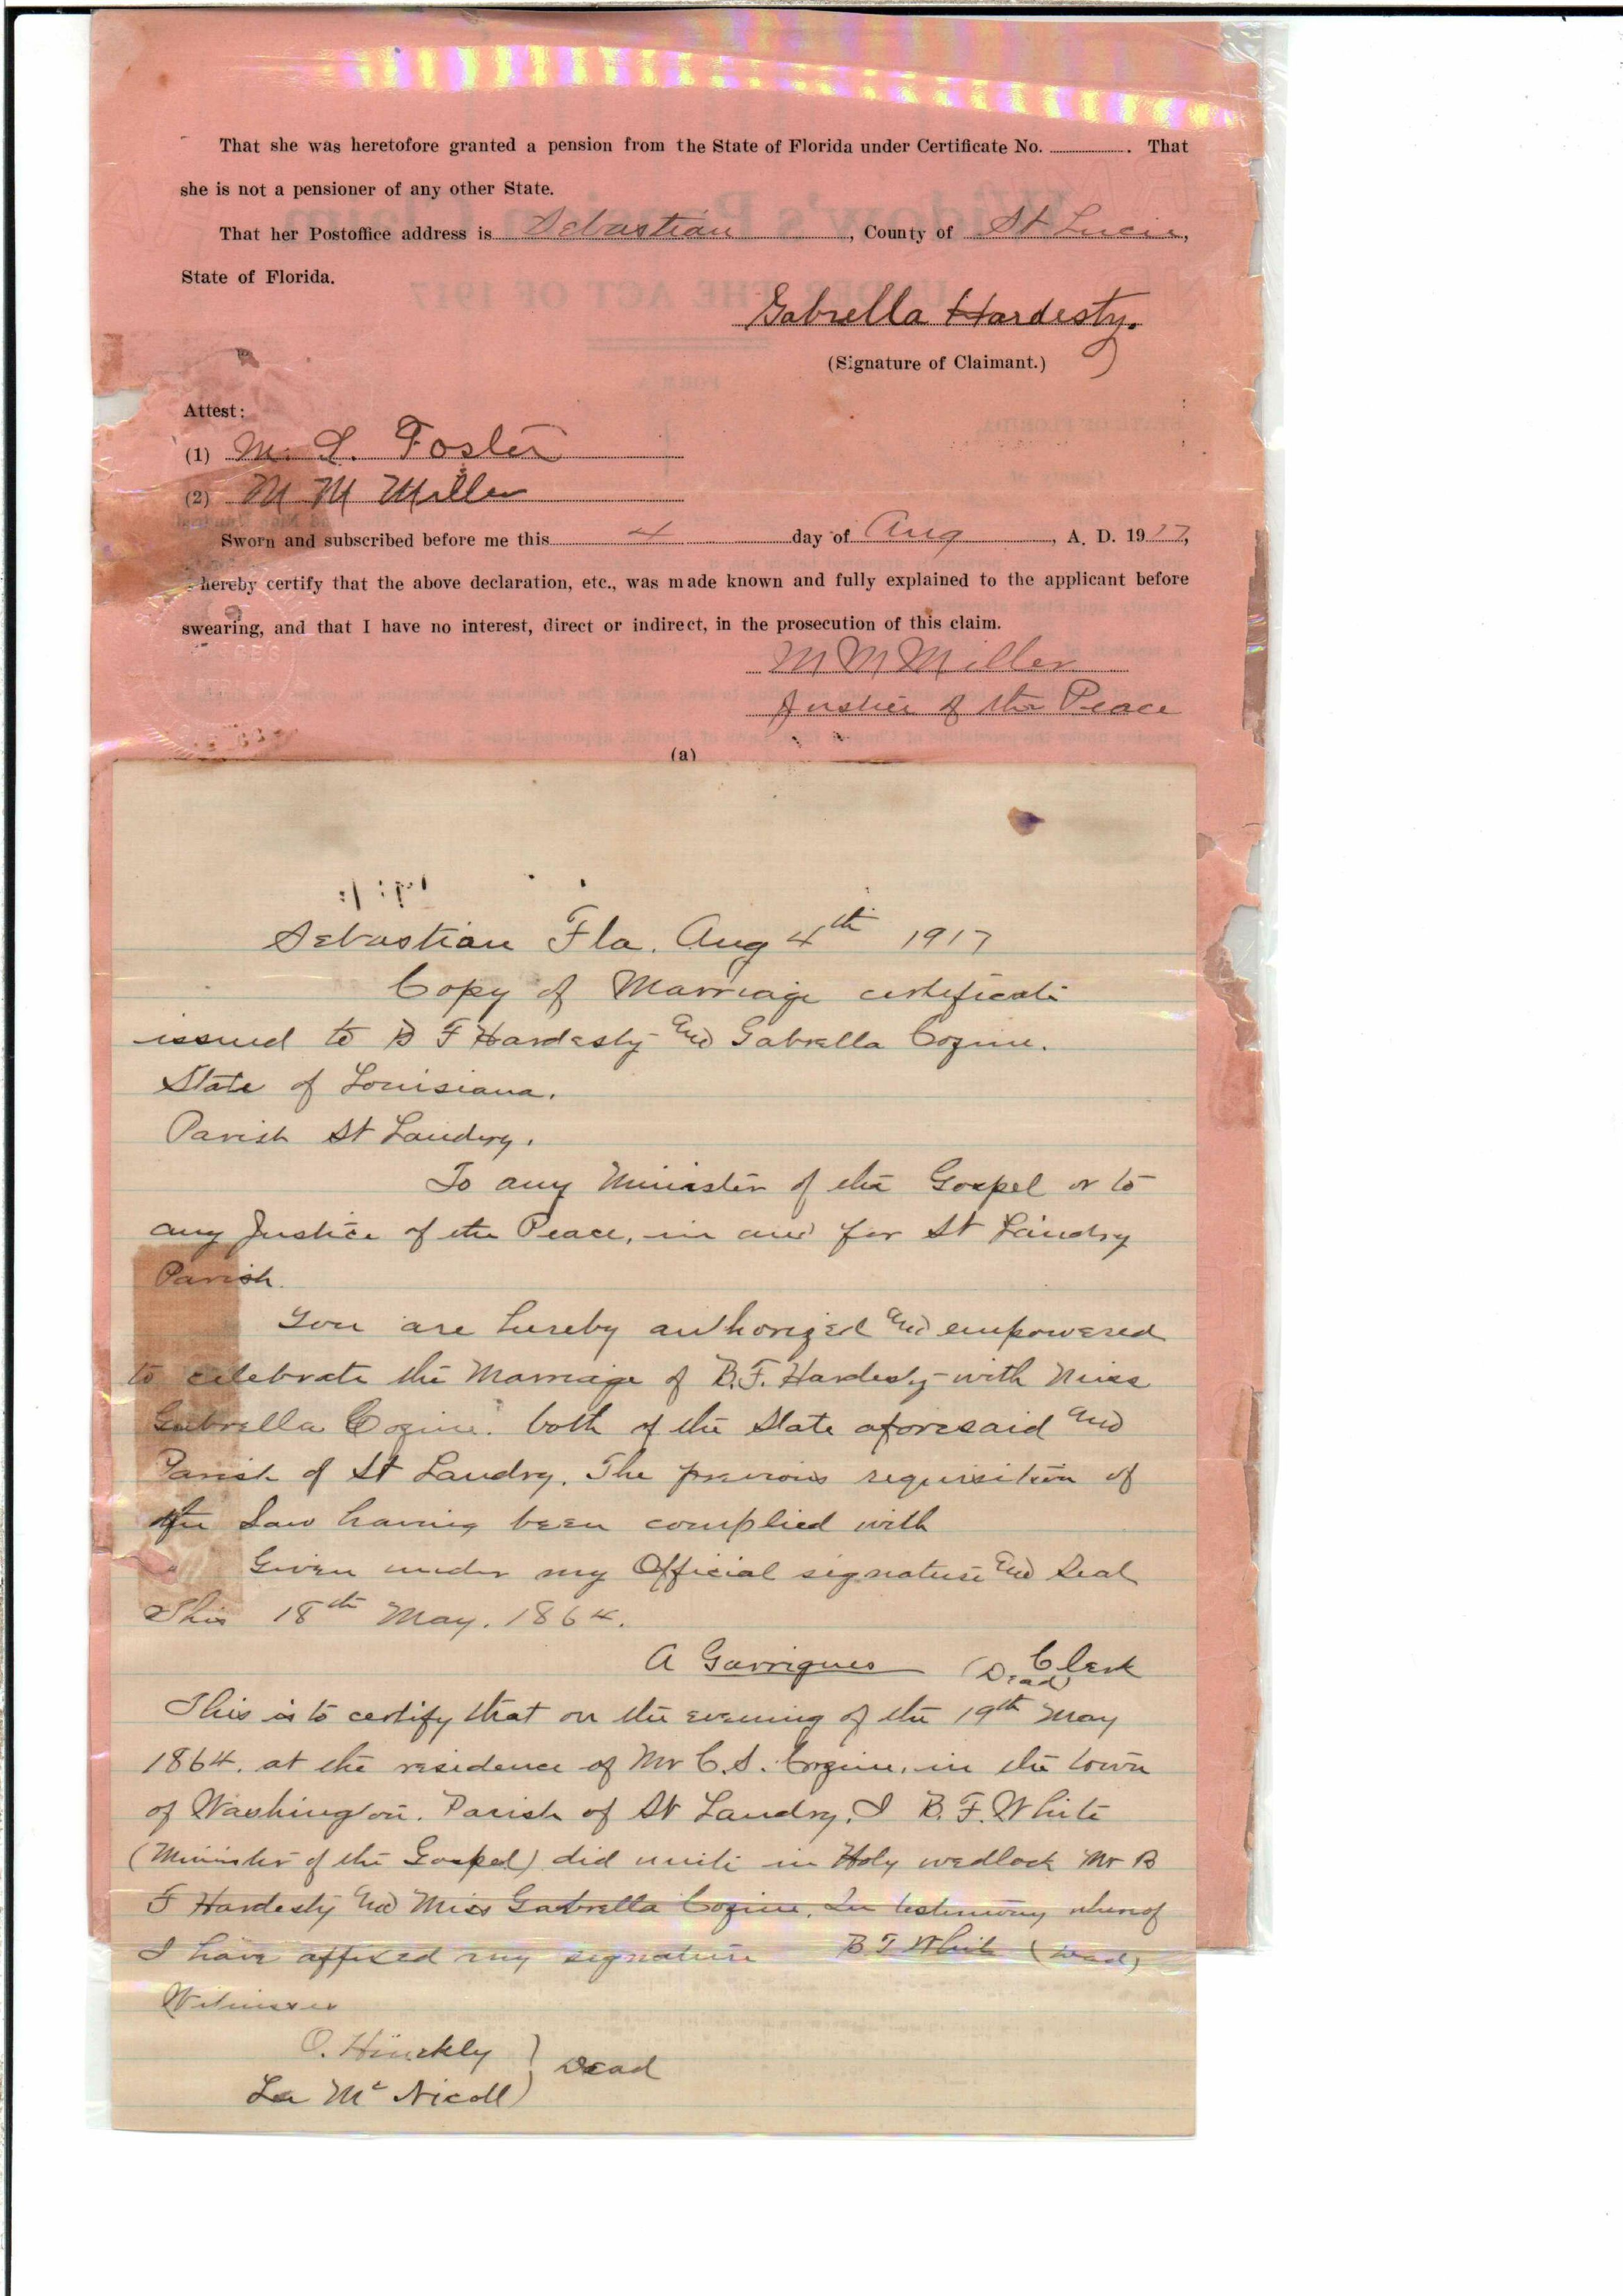 That she was heretofore granted a pension from the State of Florida under Certificate No. .............. That
she is not a pensioner of any other State.
That her Postoffice address is Sebastian, County of St Lucie,
State of Florida.
Gabrella Hardesty.
(Signature of Claimant.)
Attest:
(1) M. L. Foster
(2) M M Miller
Sworn and subscribed before me this 4 day of Aug, A. D. 1917,
hereby certify that the above declaration, etc., was made known and fully explained to the applicant before
swearing, and that I have no interest, direct or indirect, in the prosecution of this claim.
M M Miller
Justice of the Peace
(a)
Sebastian Fla. Aug 4th 1917
Copy of Marriage certificate
issued to B F Hardesty and Gabrella Cozine.
State of Louisiana.
Parish St Landry.
To any Minister of the Gospel or to
any Justice of the Peace, in and for St Landry
Parish.
You are hereby authorized and empowered
to celebrate the Marriage of B.F. Hardesty with Miss
Gabrella Cozine. both of the State aforesaid and
Parish of St Landry. The previous requisition of
the Law having been complied with
Given under my Official signature and Seal
This 18th May. 1864.
A Garrigues Clerk (Dead)
This is to certify that on the evening of the 19th May
1864. at the residence of Mr C.S. Cozine, in the town
of Washington. Parish of St Landry. I B. F. White
(Minister of the Gospel) did unite in Holy wedlock Mr B
F Hardesty and Miss Gabrella Cozine. In testimony whereof
I have affixed my signature B F White (Dead)
Witnesses
O. Hinckly } Dead
La Mc Nicoll